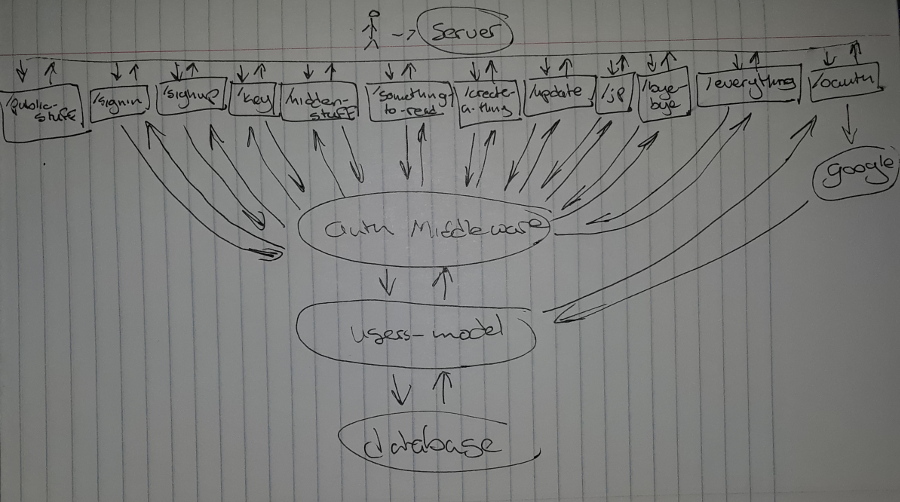 Server
/public-
stuff
/signin
/signup
/key
/hidden-
stuff
/something-
to-read
/create-
a-thing
/update
/jp
/bye-
bye
/everything
/oauth
google
auth Middleware
users-model
database